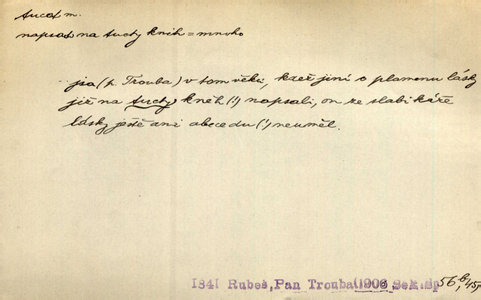 tucet m.
napsat na tucty knih = mnoho
jsa (p. Trouba) v tom věku, kdež jiní o plamenu lásky
již na tucty kněh (!) napsali, on ze slabikáře
lásky ještě ani abecedu (!) neuměl.
1841 Rubeš, Pan Trouba (1906, Seb. sp 56,b/45,